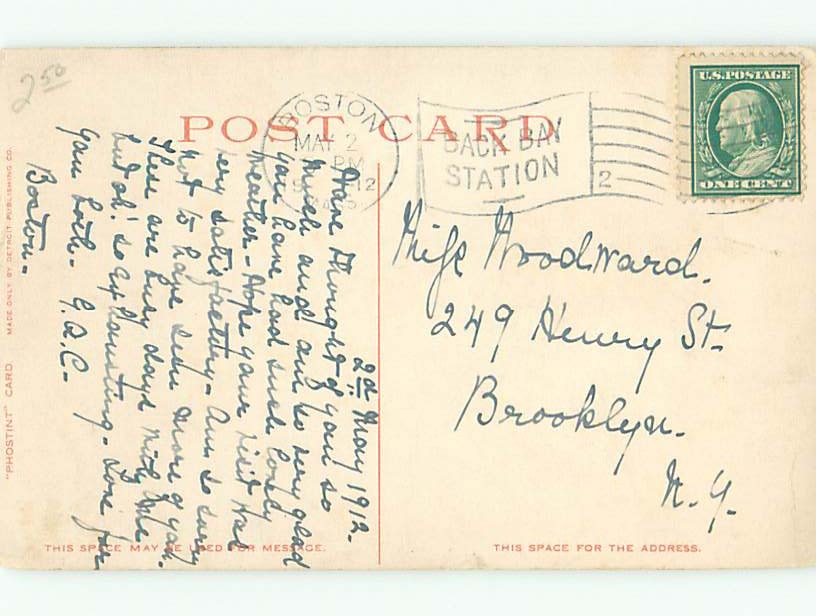 2.50
POST CARD
BOSTON
MAY 2
PM
12
BACK BAY
STATION
2
U.S. POSTAGE
ONE CENT
2d May 1912.
Have thought of you so
much and am so very glad
you have had such lovely
weather - Hope your visit has
very satisfactory - Am so sorry
not to have seen more of you.
These are busy days with me
but oh! so exhausting - Love for
you both - G.A.C. -
Boston -
Miss Woodward.
249 Henry St.
Brooklyn.
N.Y.
THIS SPACE MAY BE USED FOR MESSAGE.
THIS SPACE FOR THE ADDRESS.
"PHOSTINT" CARD
MADE ONLY BY DETROIT PUBLISHING CO.